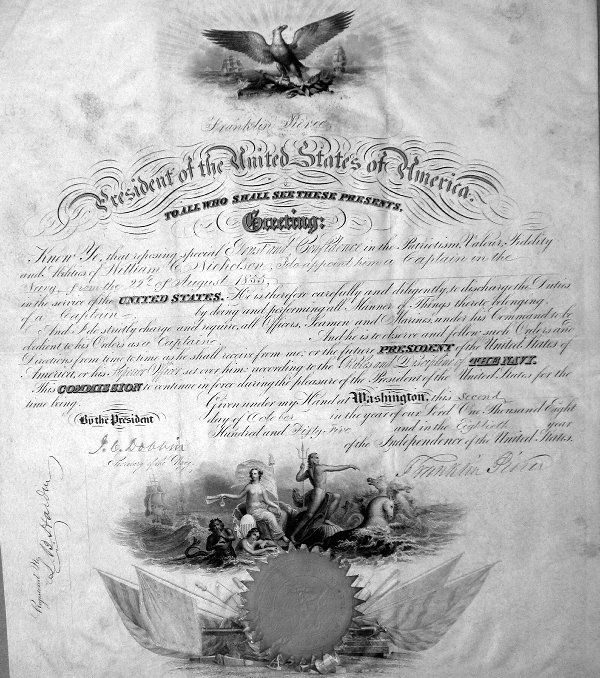 Franklin Pierce
President of the United States of America.
TO ALL WHO SHALL SEE THESE PRESENTS,
Greeting:
Know Ye, that reposing special Trust and Confidence in the Patriotism, Valour, Fidelity
and Abilities of William C. Nicholson, I do appoint him a Captain in the
Navy, from the 22d of August 1855,
in the service of the UNITED STATES. He is therefore carefully and diligently to discharge the Duties
of a Captain by doing and performing all Manner of Things thereto belonging.
And I do strictly charge and require all Officers, Seamen and Marines, under his Command to be
obedient to his Orders as a Captain. And he is to observe and follow such Orders and
Directions from time to time as he shall receive from me, or the future PRESIDENT of the United States of
America, or his Superior Officer set over him, according to the Rules and Discipline of THE NAVY.
This COMMISSION to continue in force during the pleasure of the President of the United States for the
time being.
Given under my Hand at Washington, this Second
day of October in the year of our Lord One Thousand Eight
Hundred and Fifty Five and in the Eightieth year
of the Independence of the United States.
By the President
Franklin Pierce
J. C. Dobbin
Secretary of the Navy.
Registered